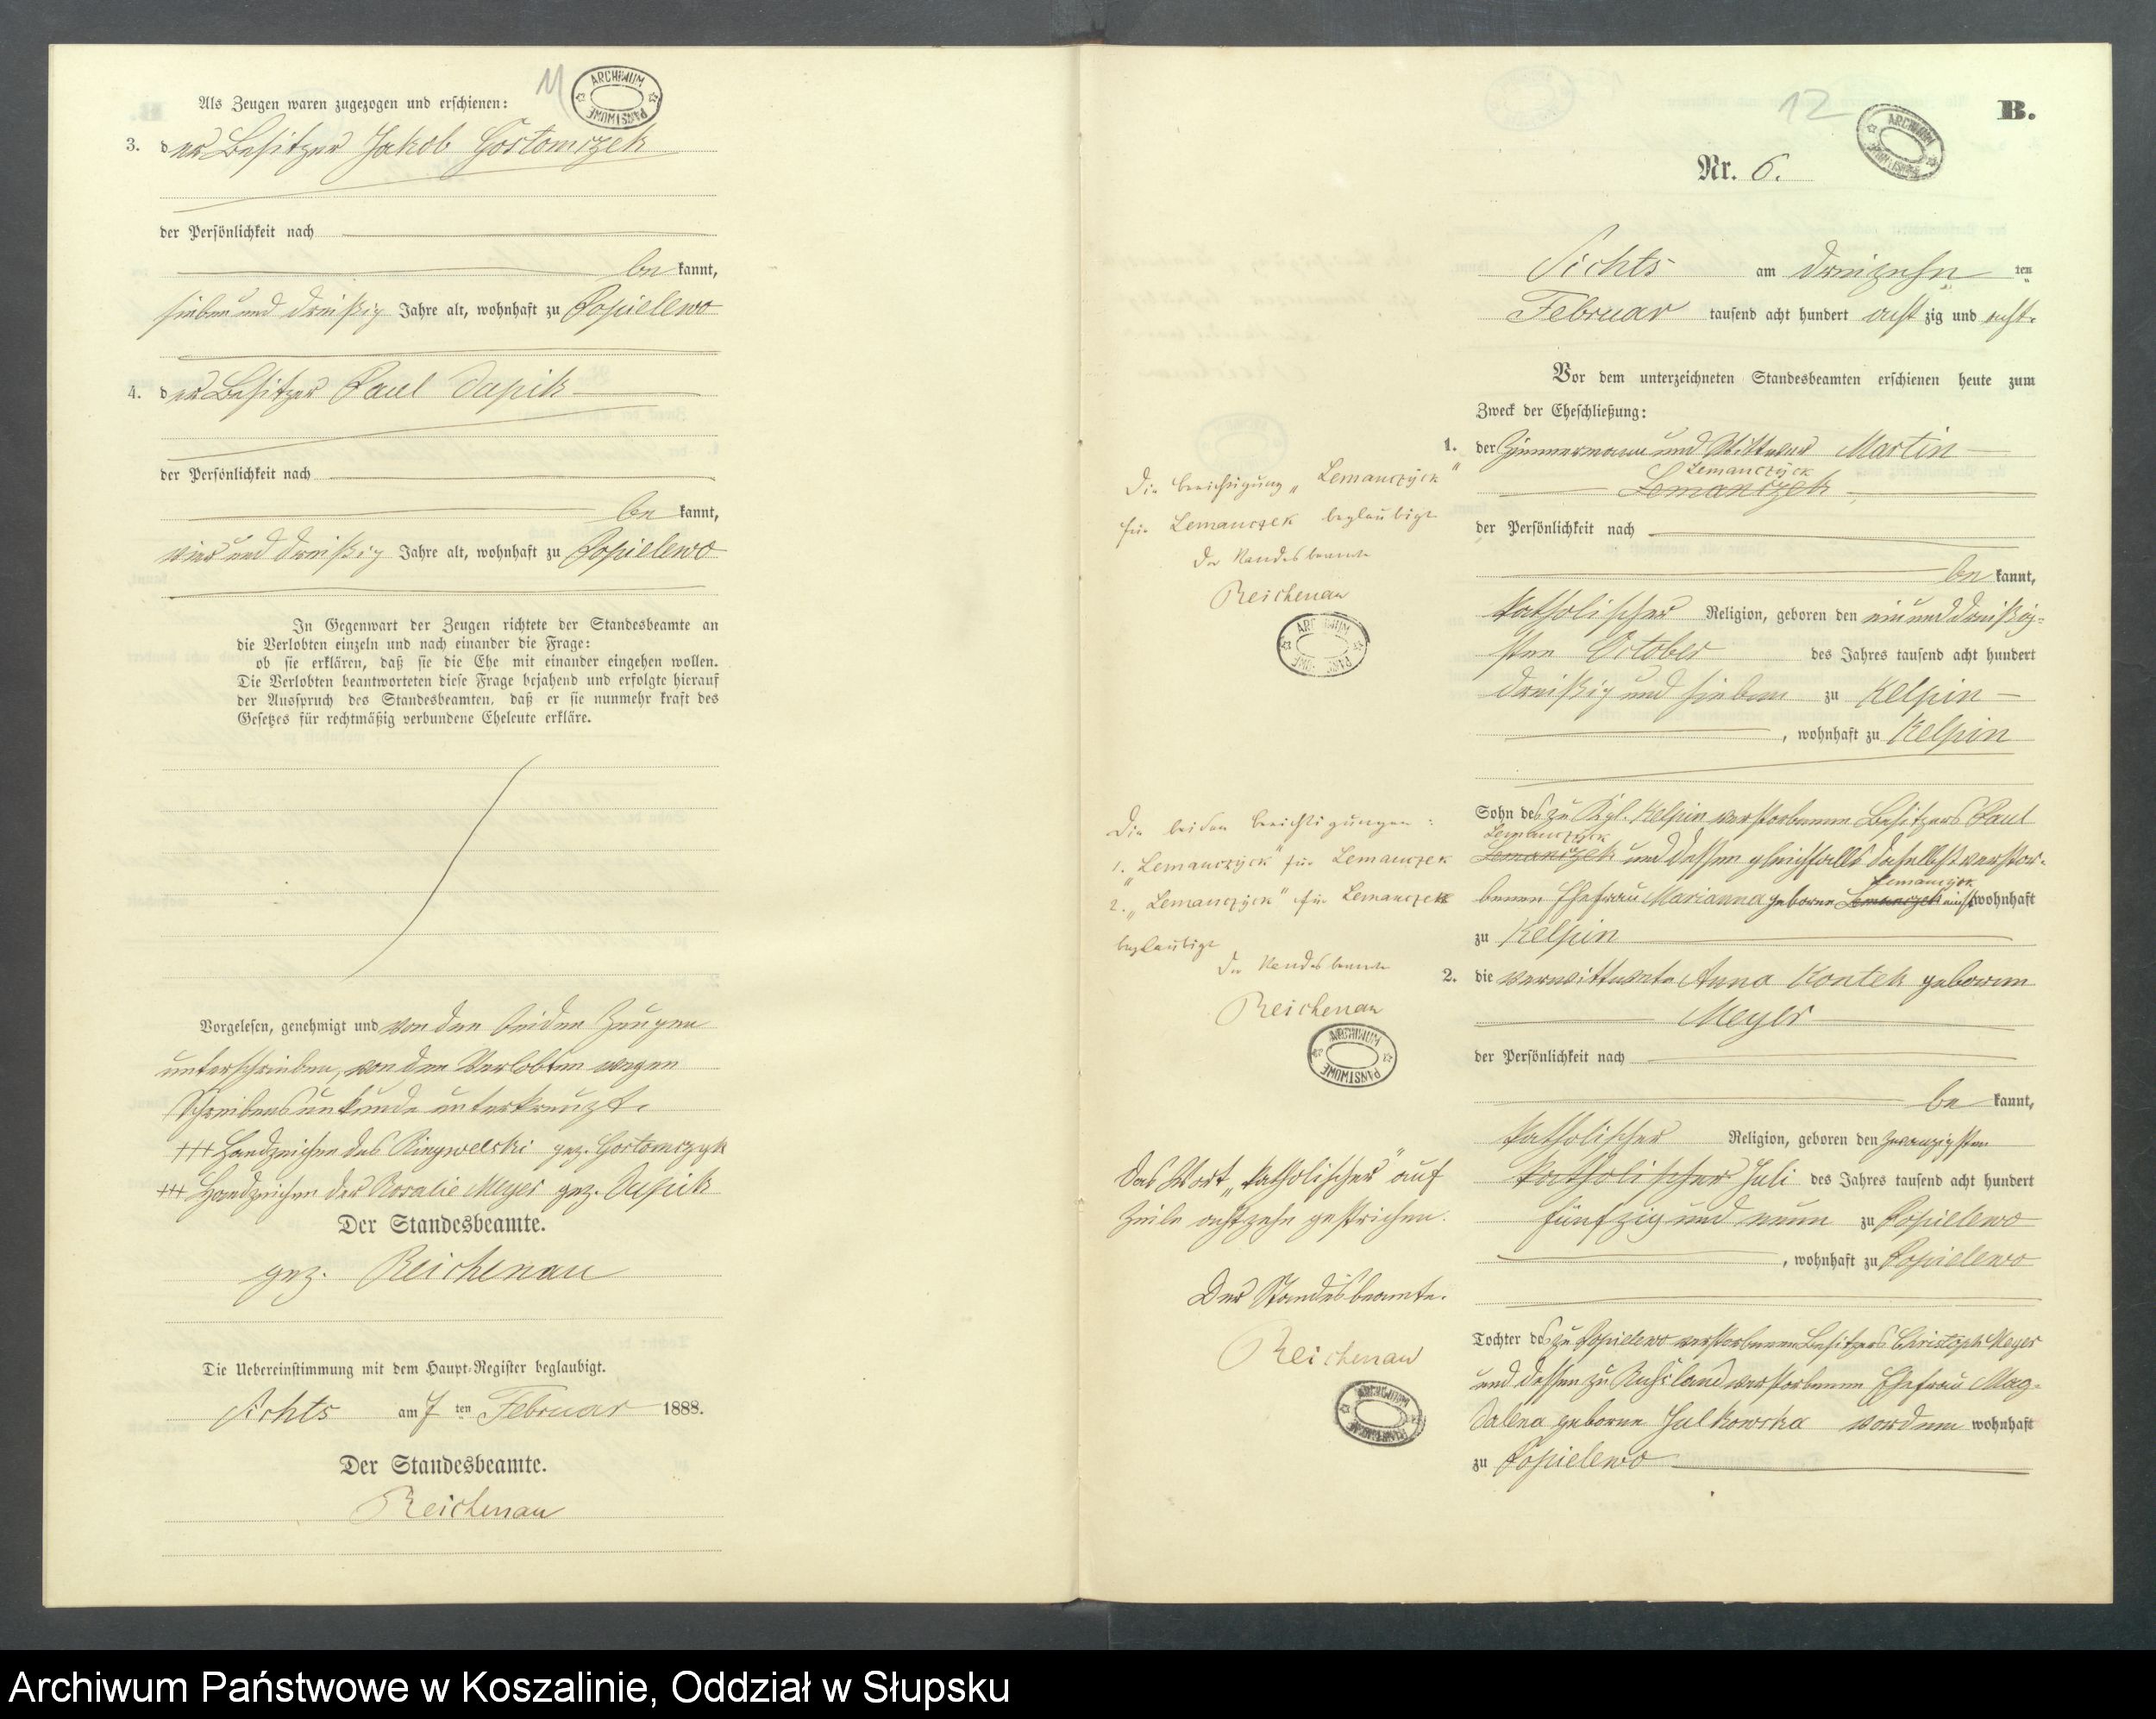 11
ARCHIWUM PAŃSTWOWE
Als Zeugen waren zugezogen und erschienen:
3. der Besitzer Jakob Gostomczek
der Persönlichkeit nach
be kannt,
sieben und dreißig Jahre alt, wohnhaft zu Popielewo
4. der Besitzer Paul Dupik
der Persönlichkeit nach
be kannt,
vier und dreißig Jahre alt, wohnhaft zu Popielewo
In Gegenwart der Zeugen richtete der Standesbeamte an
die Verlobten einzeln und nach einander die Frage:
ob sie erklären, daß sie die Ehe mit einander eingehen wollen.
Die Verlobten beantworteten diese Frage bejahend und erfolgte hierauf
der Ausspruch des Standesbeamten, daß er sie nunmehr kraft des
Gesetzes für rechtmäßig verbundene Eheleute erkläre.
Vorgelesen, genehmigt und von den beiden Zeugen
unterschrieben, von den Verlobten wegen
Schreibensunkunde unterkreuzt.
+++ Handzeichen des gez. Gostomczyk
+++ Handzeichen der Rosalie Meyer gez. Dupik
Der Standesbeamte.
gez. Reichenau
Die Uebereinstimmung mit dem Haupt-Register beglaubigt.
Sichts am 7 ten Februar 1888.
Der Standesbeamte.
Reichenau
12
ARCHIWUM PAŃSTWOWE
B.
Nr. 6.
Sichts am dreizehn ten
Februar tausend acht hundert acht zig und acht.
Vor dem unterzeichneten Standesbeamten erschienen heute zum
Zweck der Eheschließung:
1. der Zimmermann und Wittwer Martin
Lemanczyck
Lemanczek
der Persönlichkeit nach
be kannt,
katholischer Religion, geboren den ein und dreißig-
sten October des Jahres tausend acht hundert
dreißig und sieben zu Kelpin
, wohnhaft zu Kelpin
Sohn des zu Kgl. Kelpin verstorbenen Besitzers Paul
Lemanczyck
Lemanczek und dessen gleichfalls daselbst verstor-
Lemanczyck
benen Ehefrau Marianna geborne Lemanczek wohnhaft
zu Kelpin
2. die verwittwete Anna Kontek geborene
Meyer
der Persönlichkeit nach
be kannt,
katholischer Religion, geboren den zwanzigsten
katholischer Juli des Jahres tausend acht hundert
fünfzig und neun zu Popielewo
, wohnhaft zu Popielewo
Tochter des zu Popielewo verstorbenen Besitzers Christoph Meyer
und dessen zu Rußland verstorbenen Ehefrau Mag-
dalena geborne Julkowska vordem wohnhaft
zu Popielewo
Die Berichtigung „Lemanczyck"
für Lemanczek beglaubigt
Der Standesbeamte
Reichenau
ARCHIWUM PAŃSTWOWE
Die beiden Berichtigungen:
1. „Lemanczyck" für Lemanczek
2. „Lemanczyck" für Lemanczek
beglaubigt
Der Standesbeamte
Reichenau
ARCHIWUM PAŃSTWOWE
Das Wort „katholischer" auf
Zeile achtzehn gestrichen.
Der Standesbeamte.
Reichenau
ARCHIWUM PAŃSTWOWE
Archiwum Państwowe w Koszalinie, Oddział w Słupsku